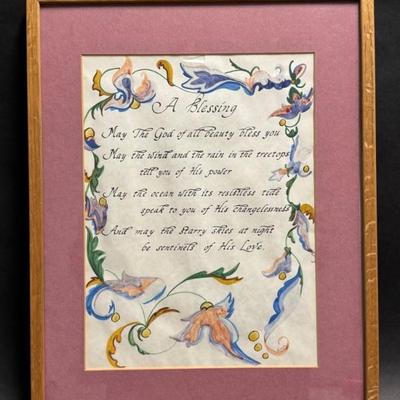 A Blessing
May The God of all beauty bless you
May the wind and the rain in the treetops
tell you of His power
May the ocean with its resistless tide
speak to you of His changelessness
And may the starry skies at night
be sentinels of His Love.